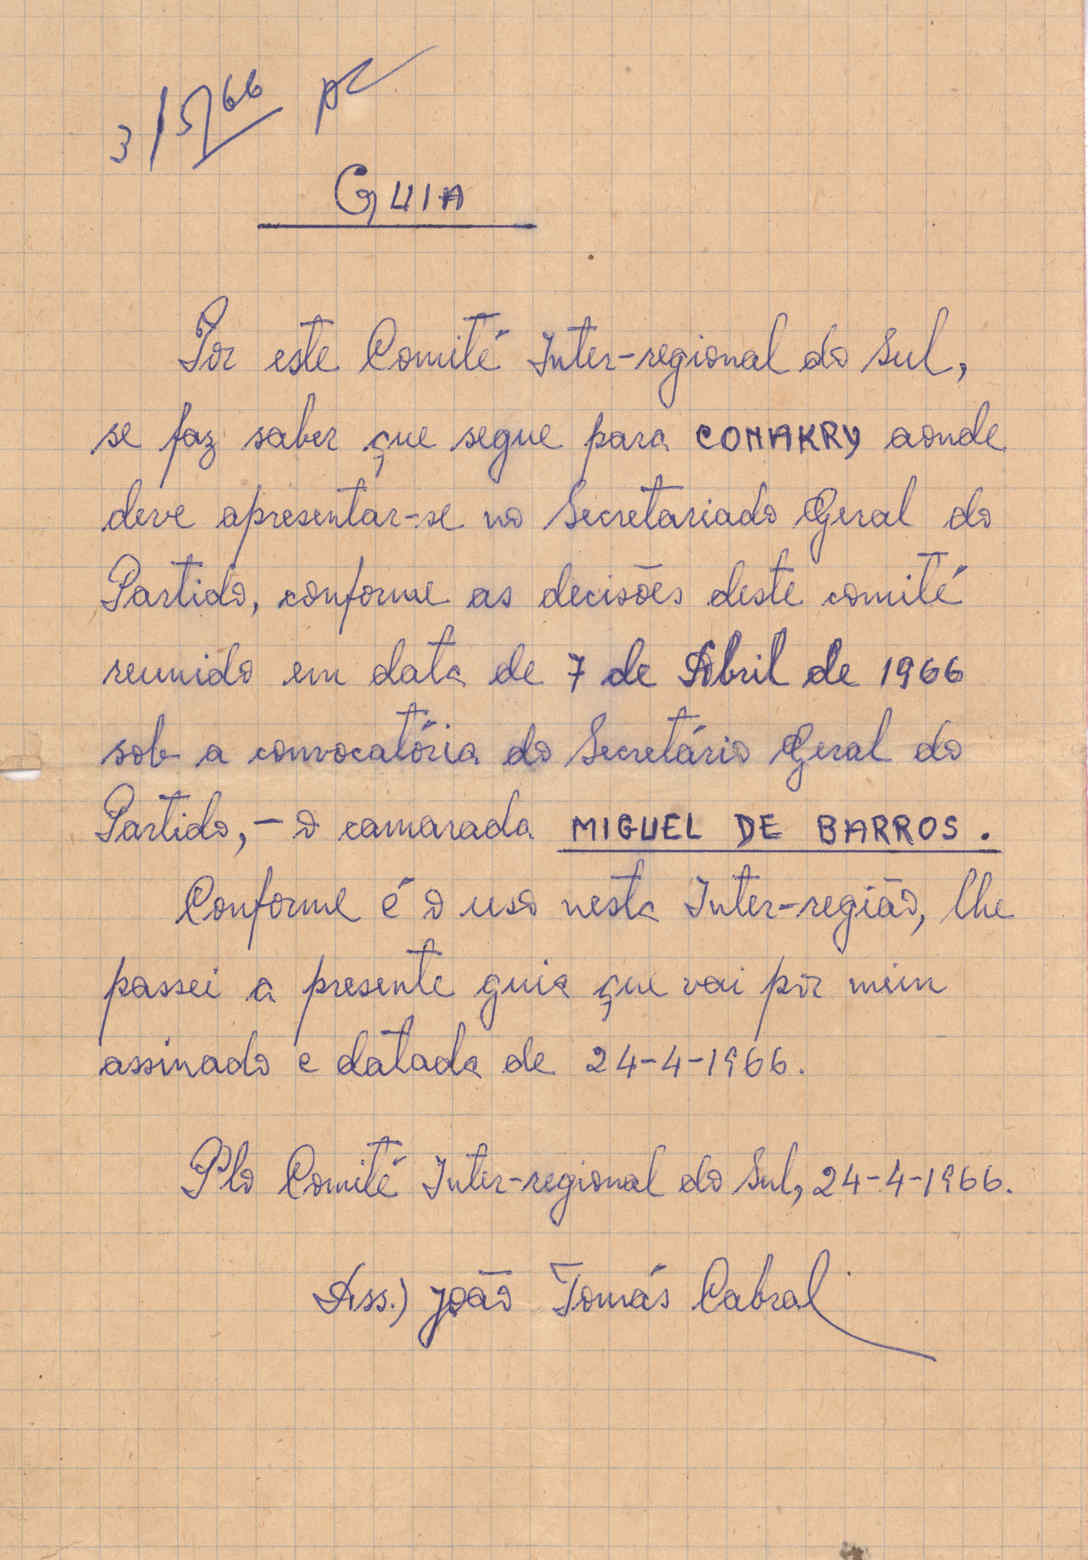 3/5/66
GUIA
Por este Comité Inter-regional do Sul,
se faz saber que segue para CONAKRY aonde
deve apresentar-se no Secretariado Geral do
Partido, conforme as decisões deste comité
reunido em data de 7 de Abril de 1966
sob a convocatória do Secretário Geral do
Partido, - o camarada MIGUEL DE BARROS.
Conforme é o uso nesta Inter-região, lhe
passei a presente guia que vai por mim
assinado e datada de 24-4-1966.
Plo Comité Inter-regional do Sul, 24-4-1966.
Ass.) João Tomás Cabral